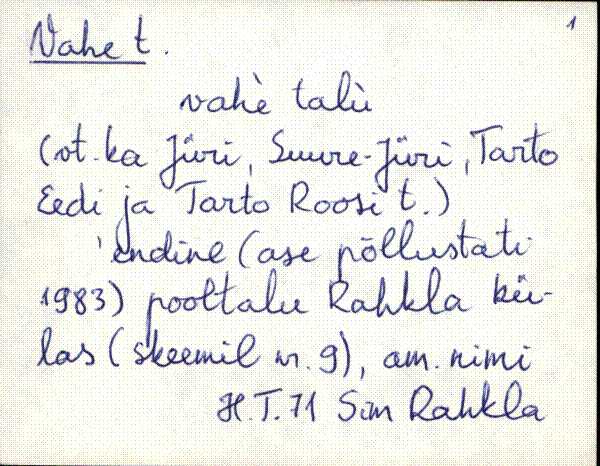 1
Vahe t.
vahè talù
(vt. ka Jüri, Suure-Jüri, Tarto
Eedi ja Tarto Roosi t.)
'endine (ase põllustati
1983) pooltalu Rahkla kü-
las (skeemil nr. 9), am. nimi
H.T. 71 Sim Rahkla